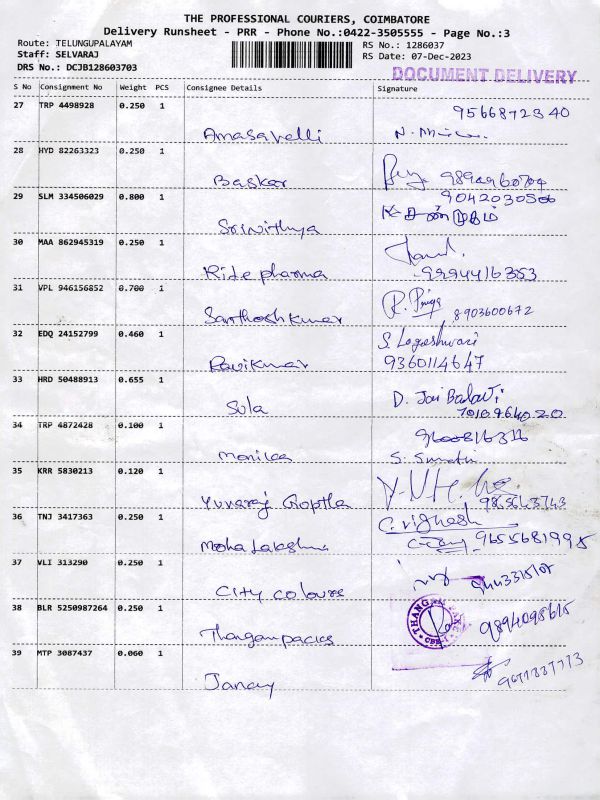 THE PROFESSIONAL COURIERS, COIMBATORE
Delivery Runsheet - PRR - Phone No.:0422-3505555 - Page No.:3
Route: TELUNGUPALAYAM
RS No.: 1286037
Staff: SELVARAJ
RS Date: 07-Dec-2023
DRS No.: DCJB128603703
DOCUMENT DELIVERY
S No Consignment No Weight PCS Consignee Details Signature
27 TRP 4498928 0.250 1
9566872340
28 HYD 82263323 0.250 1
Baskar
29 SLM 334506029 0.800 1
9042030506
Srinithya
30 MAA 862945319 0.250 1
Ride pharma 9994416353
31 VPL 946156852 0.700 1
R. Priya 8903600672
Santhosh kumar
32 EDQ 24152799 0.460 1
S. Logeshwari
Ravikumar 9360114647
33 HRD 50488913 0.655 1
D. Jai Balaji
Sula
34 TRP 4872428 0.100 1
Monika
35 KRR 5830213 0.120 1
Yuvaraj
36 TNJ 3417363 0.250 1
C. Vignesh
9655681995
37 VLI 313290 0.250 1
City colours
38 BLR 5250987264 0.250 1
9894098615
39 MTP 3087437 0.060 1